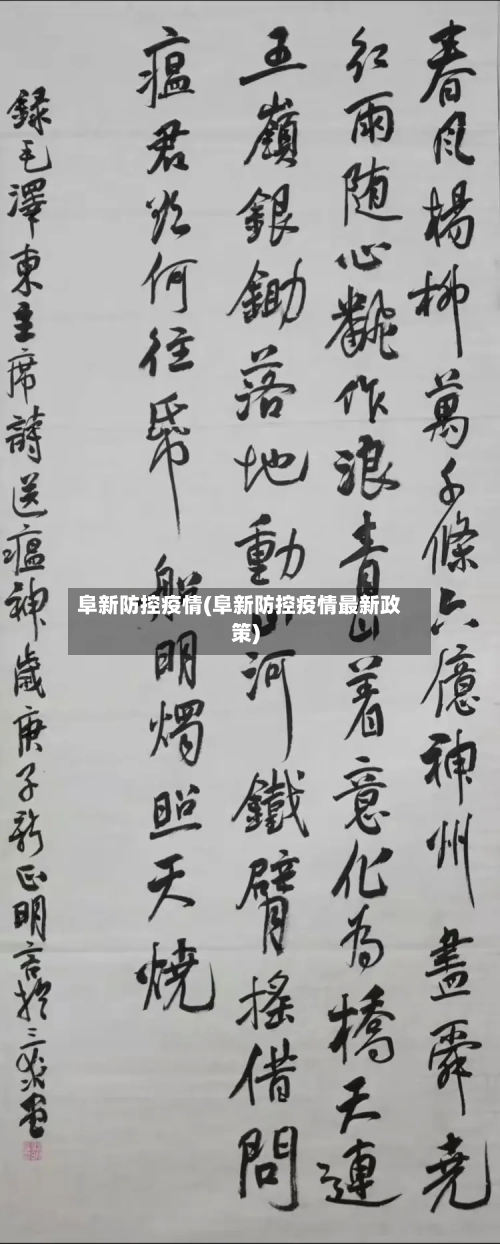 春风楊柳萬千條六億神州盡舜堯
红雨随心翻作浪青山着意化為橋天連
五嶺銀鋤落地動山河鐵臂搖借問
瘟君欲何往纸船明燭照天燒
録毛澤東主席詩送瘟神歲庚子新正明言於三
阜新防控疫情(阜新防控疫情最新政
策)